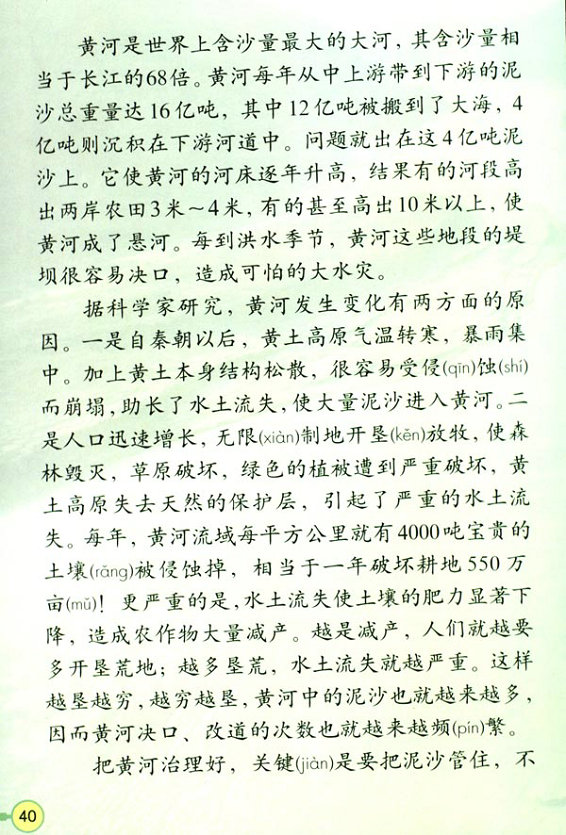 黄河是世界上含沙量最大的大河，其含沙量相
当于长江的68倍。黄河每年从中上游带到下游的泥
沙总重量达16亿吨，其中12亿吨被搬到了大海，4
亿吨则沉积在下游河道中。问题就出在这4亿吨泥
沙上。它使黄河的河床逐年升高，结果有的河段高
出两岸农田3米～4米，有的甚至高出10米以上，使
黄河成了悬河。每到洪水季节，黄河这些地段的堤
坝很容易决口，造成可怕的大水灾。
据科学家研究，黄河发生变化有两方面的原
因。一是自秦朝以后，黄土高原气温转寒，暴雨集
中。加上黄土本身结构松散，很容易受侵(qīn)蚀(shí)
而崩塌，助长了水土流失，使大量泥沙进入黄河。二
是人口迅速增长，无限(xiàn)制地开垦(kěn)放牧，使森
林毁灭，草原破坏，绿色的植被遭到严重破坏，黄
土高原失去天然的保护层，引起了严重的水土流
失。每年，黄河流域每平方公里就有4000吨宝贵的
土壤(rǎng)被侵蚀掉，相当于一年破坏耕地550万
亩(mǔ)！更严重的是，水土流失使土壤的肥力显著下
降，造成农作物大量减产。越是减产，人们就越要
多开垦荒地；越多垦荒，水土流失就越严重。这样
越垦越穷，越穷越垦，黄河中的泥沙也就越来越多，
因而黄河决口、改道的次数也就越来越频(pín)繁。
把黄河治理好，关键(jiàn)是要把泥沙管住，不
40